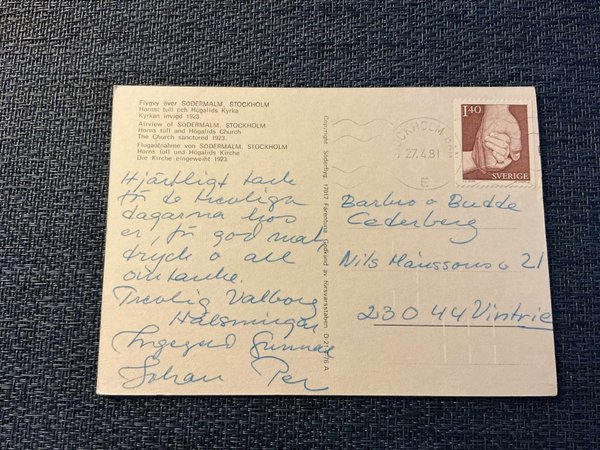 Flygvy över SÖDERMALM, STOCKHOLM
Hornst tull och Högalids Kyrka
Kyrkan invigd 1923.
Airview of SÖDERMALM, STOCKHOLM
Horns tull and Högalids Church
The Church sanctored 1923.
Flugaufnahme von SÖDERMALM, STOCKHOLM
Horns tull und Högalids Kirche
Die Kirche eingeweiht 1923
Hjärtligt tack
för de trevliga
dagarna hos
er, för god mat,
dryck o all
omtanke.
Trevlig Valborg
Hälsningar
Ingegerd Gunnar
Johan Per
Copyright: Söderflyg, 17017 Färentuna Godkänd av försvarsstaben.
STOCKHOLM
27.4.81
E
140
SVERIGE
Barbro o Budde
Cederberg
Nils Månssons 21
230 44 Vintrie